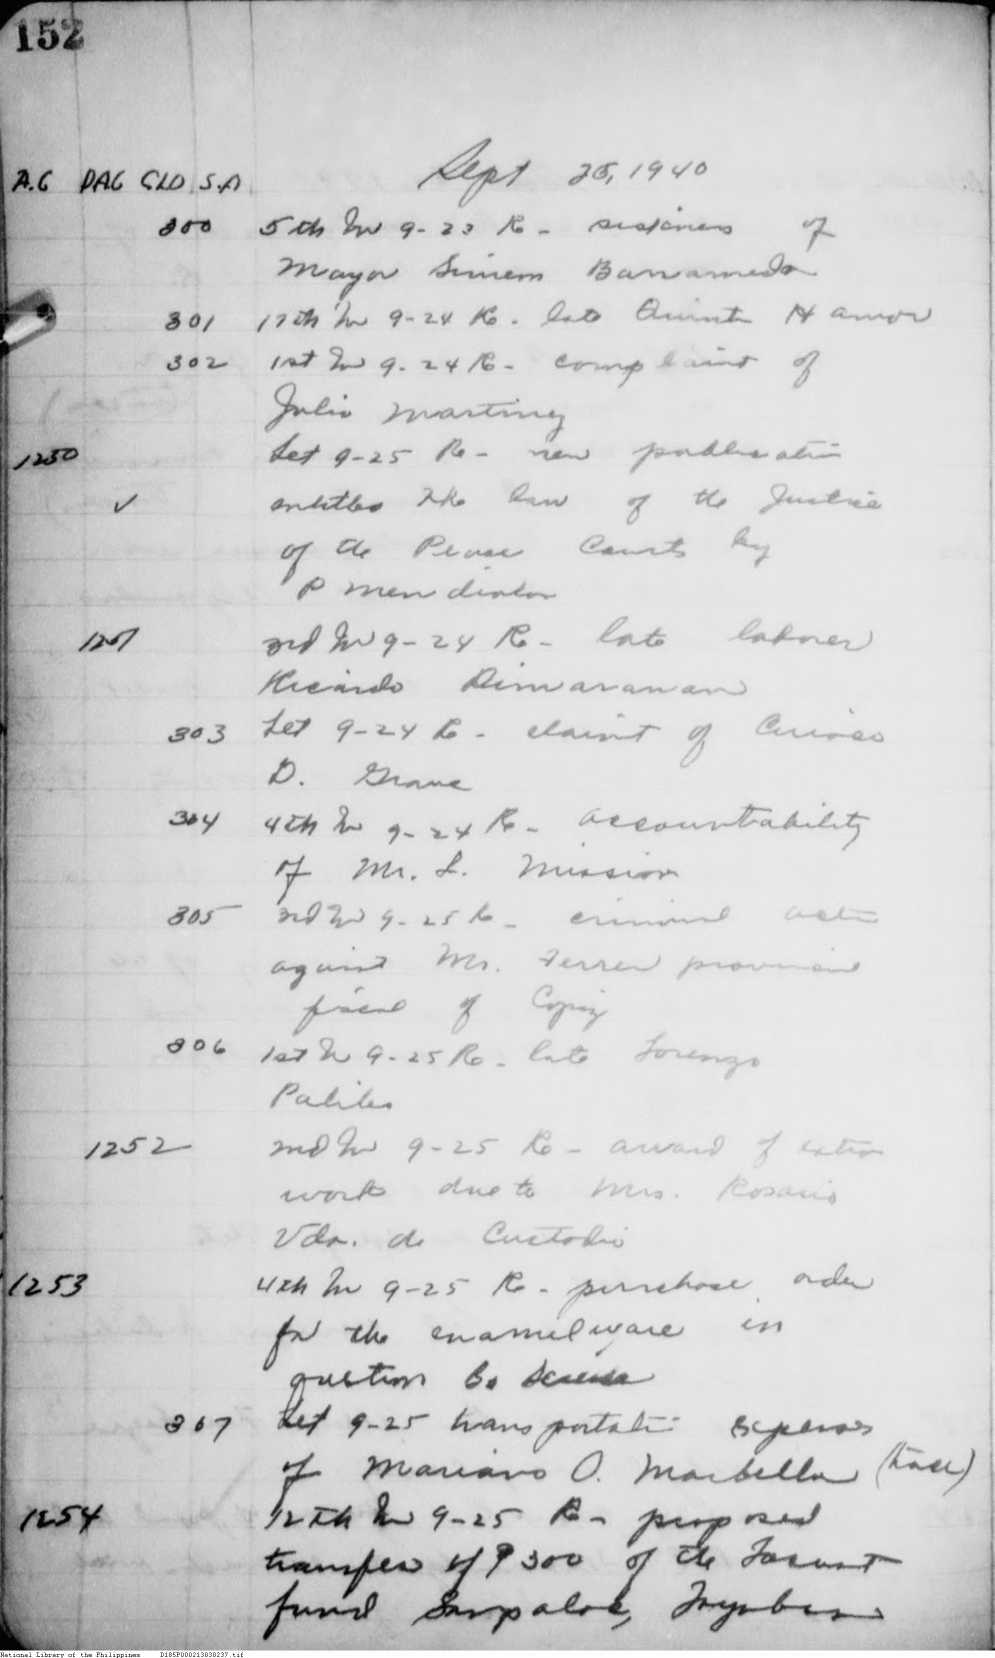 152
Sept 25, 1940
A.G DAG CLD S.A
300 5th In 9-23 Re - of
Mayor Barrameda
301 17th In 9-24 Re - late
302 1st In 9-24 Re - complaint of
Julio Martinez
1250 Let 9-25 Re - new publication
✓ entitled The law of the Justice
of the Peace Courts by
P Mendiola
1251 3rd In 9-24 Re - late laborer
Ricardo Dimaranan
303 Let 9-24 Re - claim of
D. Grave
304 4th In 9-24 Re - accountability
of Mr. L. Mission
305 3rd In 9-25 Re - criminal
against Mr. Ferrer provincial
fiscal of Capiz
306 1st In 9-25 Re - late Lorenzo
1252 2nd In 9-25 Re - award of extra
work due to Mrs. Rosario
Vda. de Custodio
1253 4th In 9-25 Re - purchase order
for the enamelware in
question
307 Let 9-25 transportation expenses
of Mariano O. Marbella
1254 12th In 9-25 Re - proposed
transfer of ₱300 of the Locust
fund Sampaloc, Tayabas
National Library of the Philippines D185P000213838237.tif